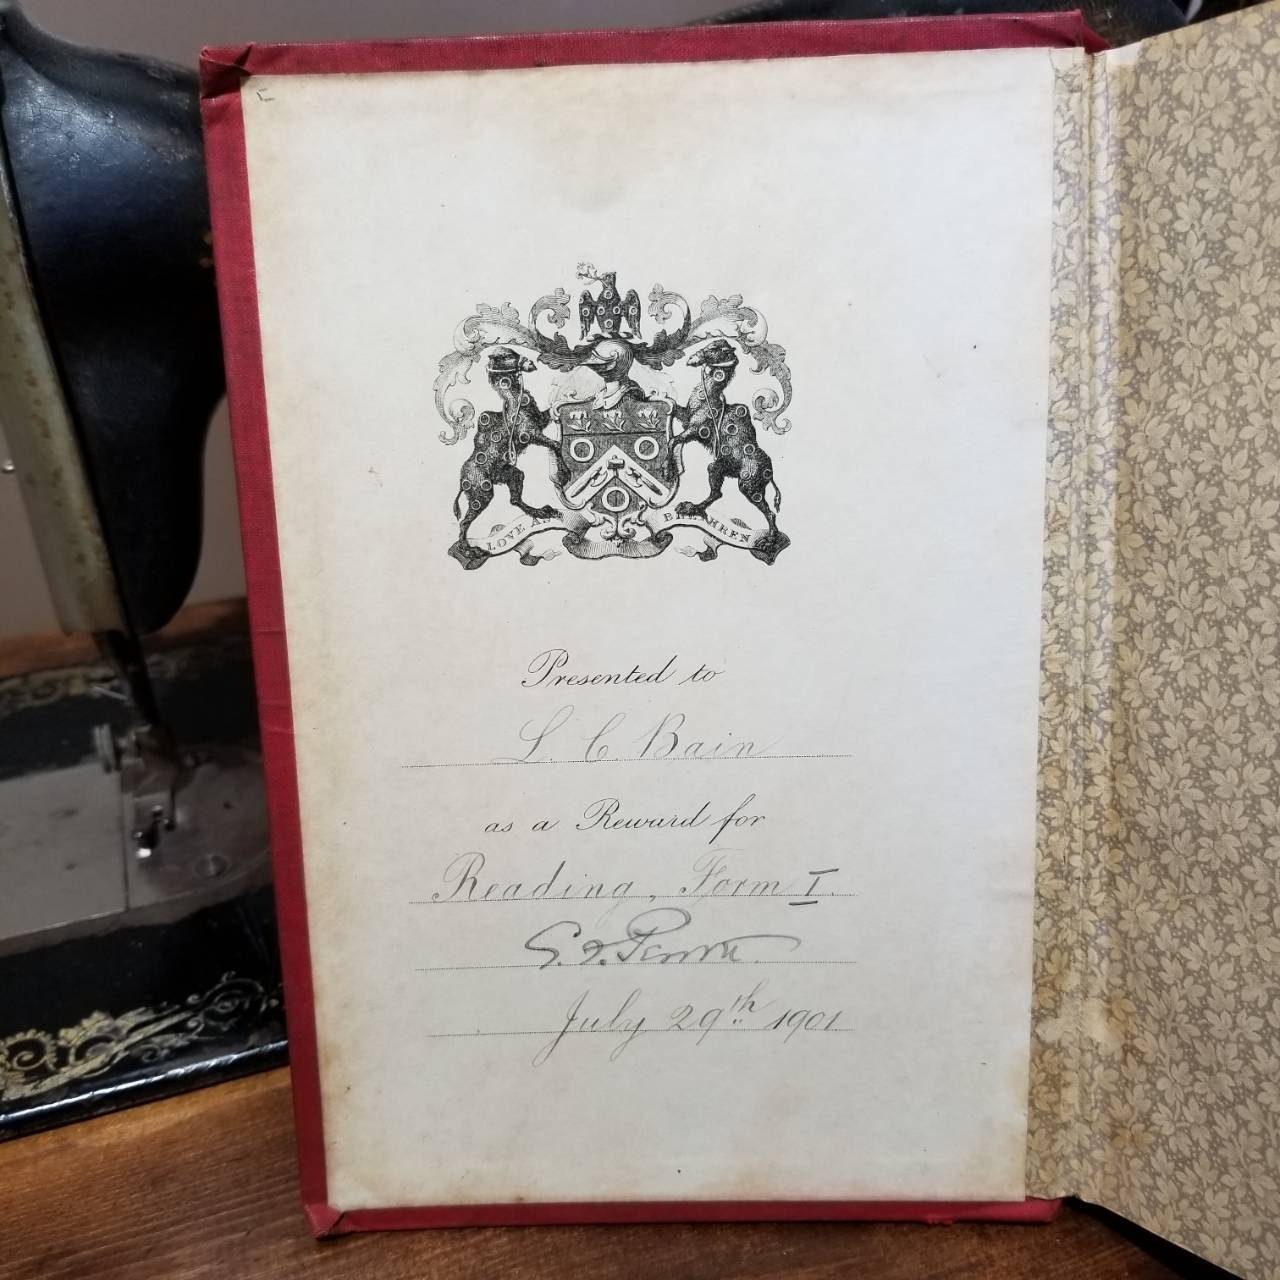 LOVE AS BRETHREN
Presented to
L. C. Bain
as a Reward for
Reading, Form I.
July 29th 1901